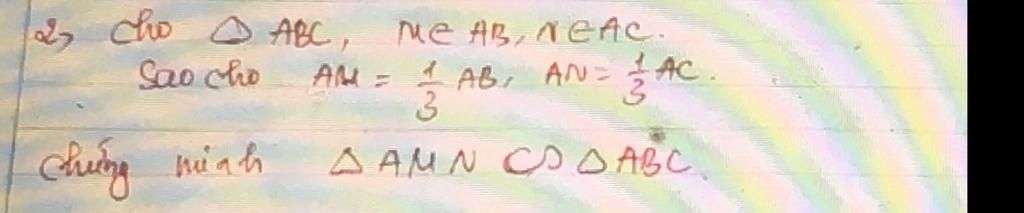 2, Cho △ ABC, M∈ AB, N∈ AC.
Sao cho AM = 1/3 AB, AN = 1/3 AC.
Chứng minh △ AMN ∽ △ ABC.